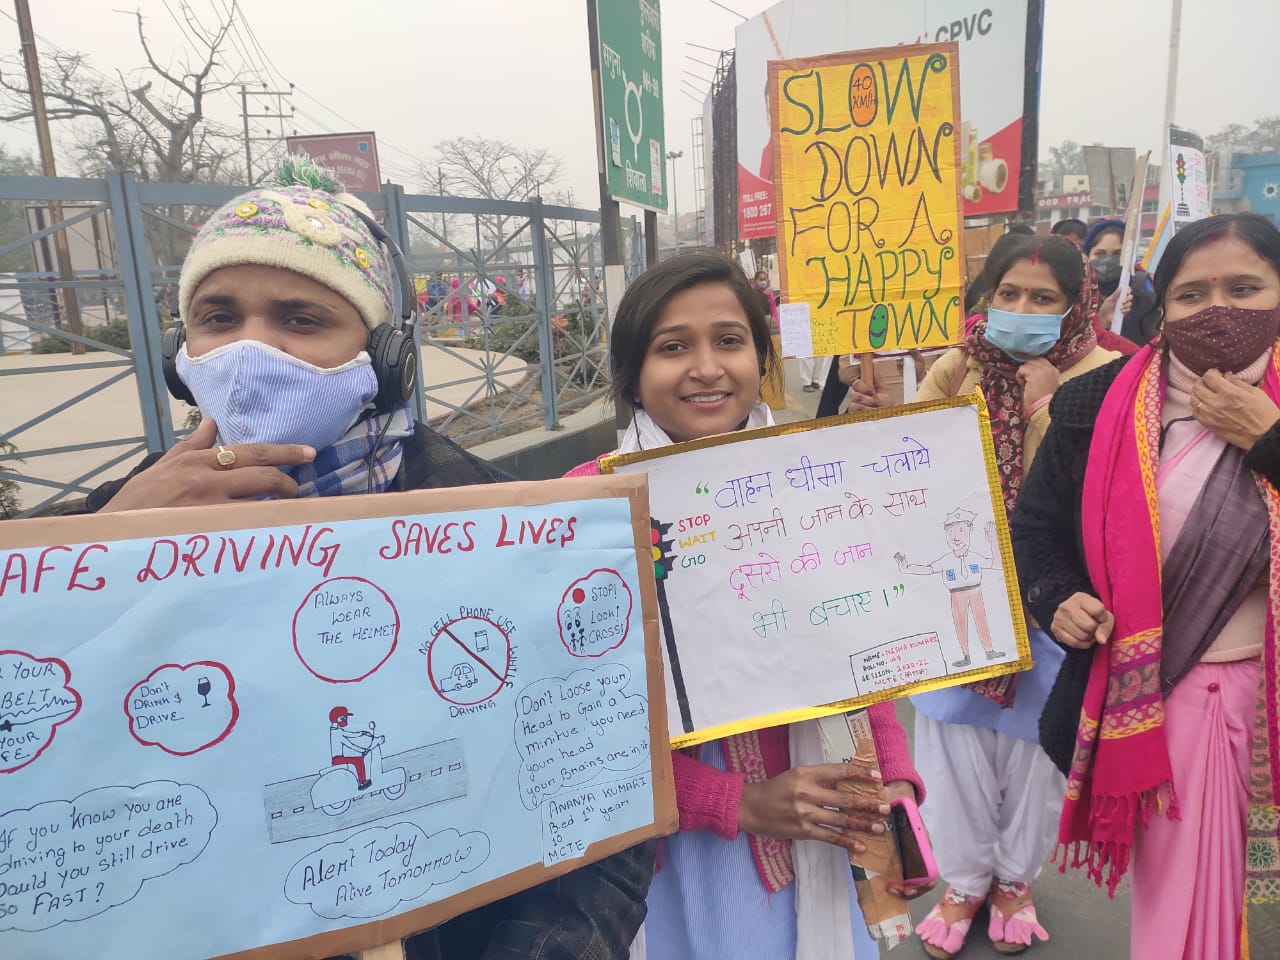 SAFE DRIVING SAVES LIVES
ALWAYS
WEAR
THE HELMET
NO CELL PHONE USE WHILE
DRIVING
STOP!
LOOK!
CROSS!
R YOUR
BELT
YOUR
FE
Don't
DRINK &
DRIVE
Don't Loose your
Head to Gain a
minitue, you need
your head
your Brains are in it
If you know You are
driving to your death
Would You still drive
so FAST?
Alert Today
Alive Tomorrow
ANANYA KUMARI
Bed 1st year
10
MCTE
STOP
WAIT
GO
“वाहन धीमा चलाये
अपनी जान के साथ
दूसरो की जान
भी बचाए।”
NAME - NEHA KUMARI
ROLL NO. 49
SESSION - 2020-22
MCTE (PATNA)
SLOW
40
KM/H
DOWN
FOR A
HAPPY
TOWN
फुलवारी
शरीफ
NH-98
सगुना
शिवाला
CPVC
TOLL FREE:
1800 267